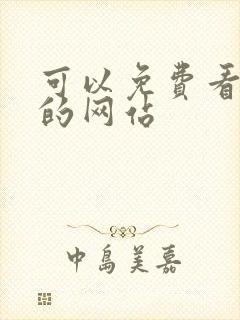 可以免费看
的网站
中島美嘉